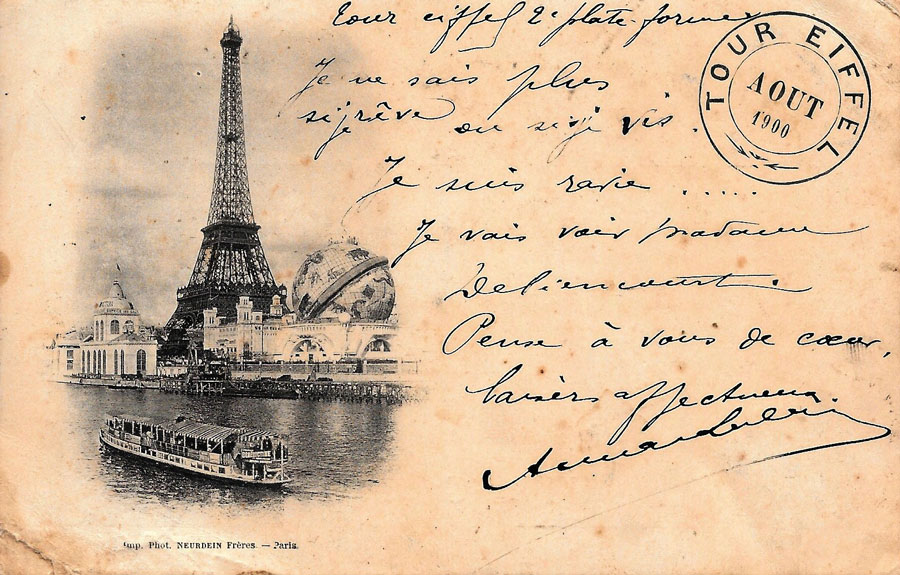 Tour eiffel 2e plate-forme
Je ne sais plus
si je rêve ou si je vis.
Je suis ravie .....
Je vais voir madame
Deliencourt.
Pense à vous de cœur,
baisers affectueux
TOUR EIFFEL
AOUT
1900
Imp. Phot. NEURDEIN Frères. — Paris.